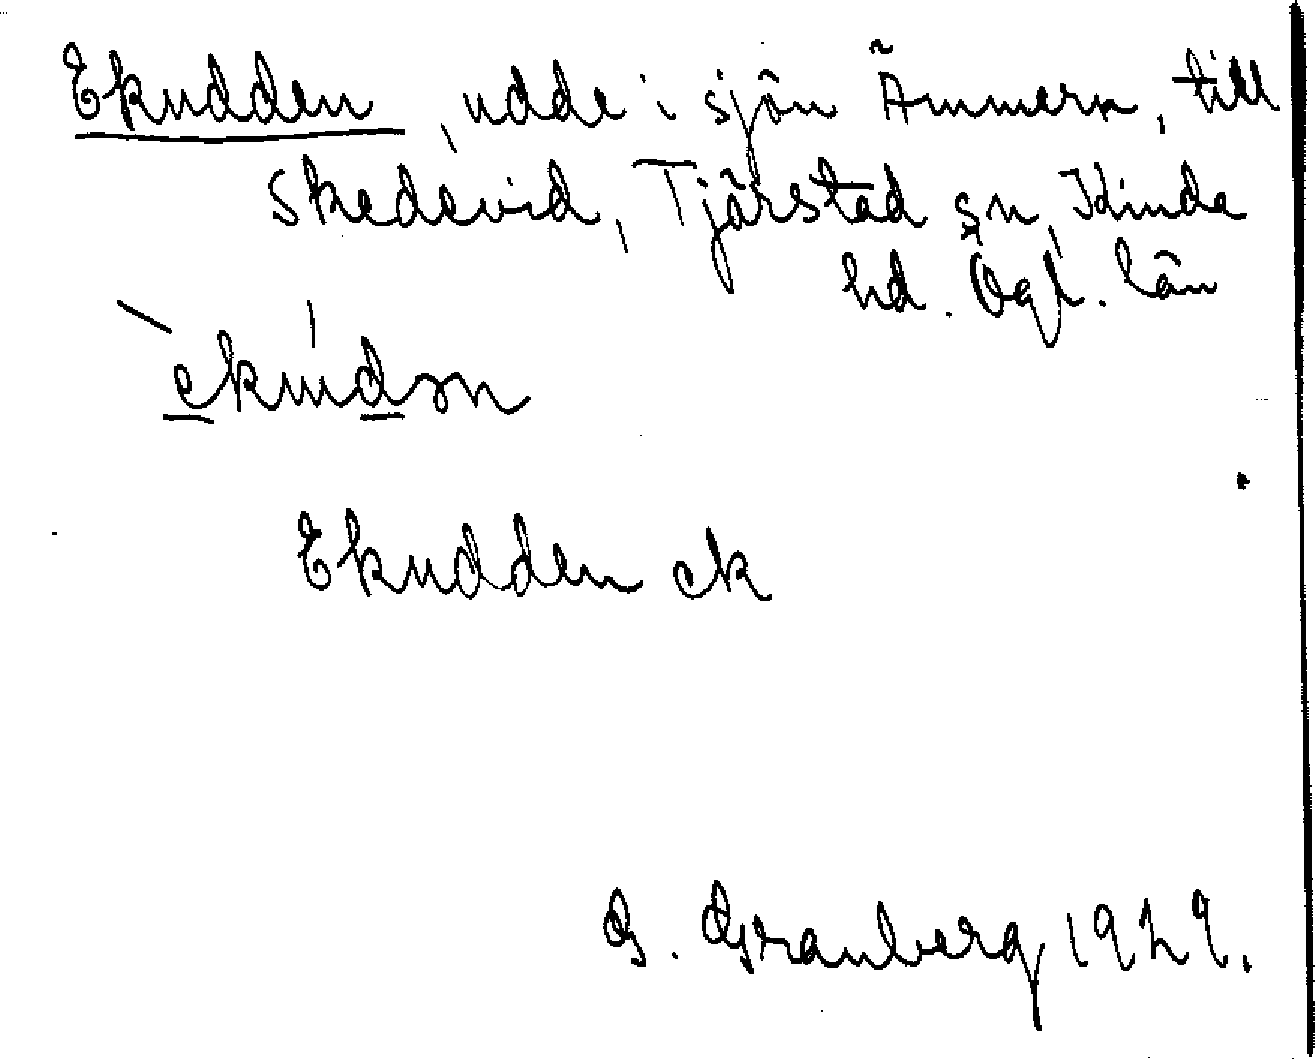 Ekudden, udde i sjön Ämmern, till
Skedevid, Tjärstad sn, Kinda
hd. Ögl. län
ekudən
Ekudden ek
G. Granberg 1929.